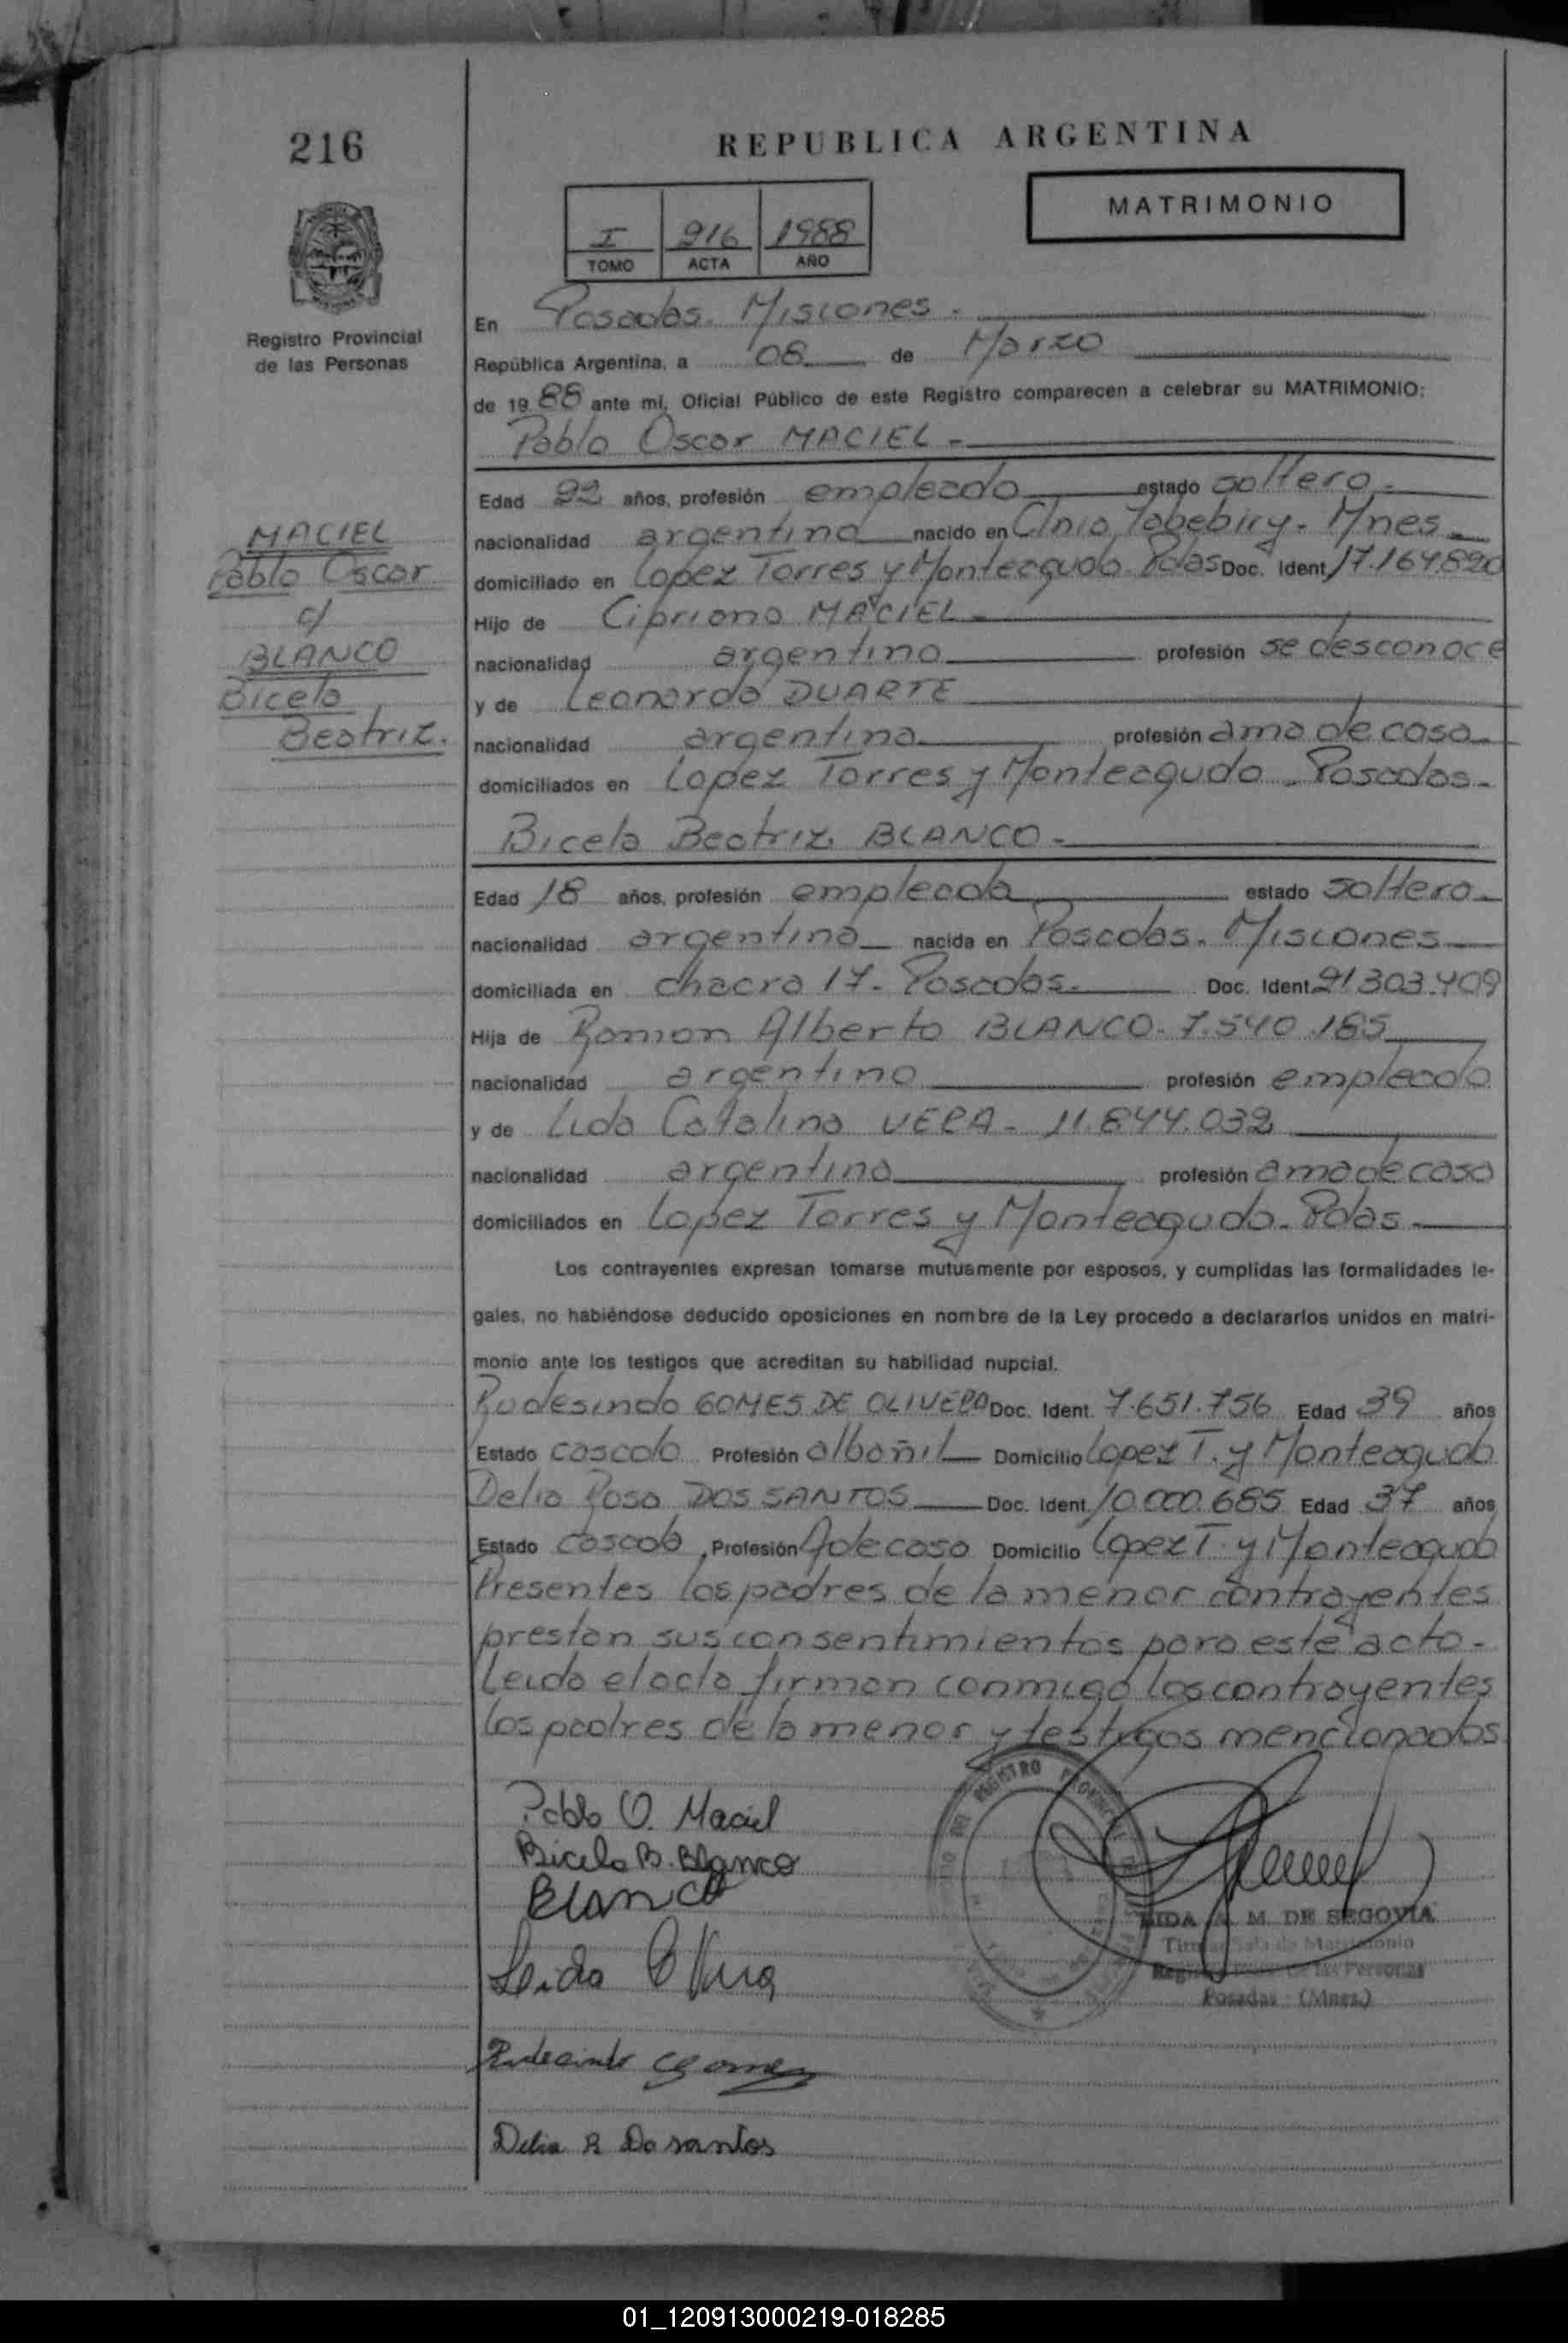 216
REPUBLICA ARGENTINA
MATRIMONIO
I 216 1988
TOMO ACTA AÑO
Registro Provincial
de las Personas
En Posadas. Misiones.
República Argentina, a 08 de Marzo
de 1988 ante mí, Oficial Público de este Registro comparecen a celebrar su MATRIMONIO:
Pablo Oscar MACIEL -
Edad 22 años, profesión empleado estado soltero -
nacionalidad argentina nacido en Clnia Yabebiry. Mnes
domiciliado en Lopez Torres y Monteagudo. Pdas Doc. Ident 17.164.820
Hijo de Cipriano MACIEL
nacionalidad argentino profesión se desconoce
y de Leonarda DUARTE
nacionalidad argentina profesión ama de casa
domiciliados en Lopez Torres y Monteagudo - Posadas-
MACIEL
Pablo Oscar
c/
BLANCO
Bicela
Beatriz.
Bicela Beatriz BLANCO-
Edad 18 años, profesión empleada estado soltera
nacionalidad argentina nacida en Posadas. Misiones
domiciliada en chacra 17- Posadas. Doc. Ident 21.303.409
Hija de Ramon Alberto BLANCO- 7.540.185
nacionalidad argentino profesión empleado
y de Lida Catalina VERA - 11.844.032
nacionalidad argentina profesión ama de casa
domiciliados en Lopez Torres y Monteagudo. Pdas
Los contrayentes expresan tomarse mutuamente por esposos, y cumplidas las formalidades le-
gales, no habiéndose deducido oposiciones en nombre de la Ley procedo a declararlos unidos en matri-
monio ante los testigos que acreditan su habilidad nupcial.
Rudesindo GOMES DE OLIVERA Doc. Ident. 7.651.756 Edad 39 años
Estado casado Profesión albañil Domicilio Lopez T. y Monteagudo
Delia Rosa DOS SANTOS Doc. Ident. 10.000.685 Edad 37 años
Estado casada Profesión A de casa Domicilio Lopez T. y Monteagudo
Presentes los padres de la menor contrayentes
prestan sus consentimientos para este acto-
Leida el acta firman conmigo los contrayentes
los padres de la menor y testigos mencionados
Pablo O. Maciel
Bicela B. Blanco
Blanco
Leida C Vera
Rudecindo Gomez
Delia R Do santos
REGISTRO
A. M. DE SEGOVIA
Titular Sala de Matrimonio
de las Personas
Posadas - (Mnes.)
01_120913000219-018285